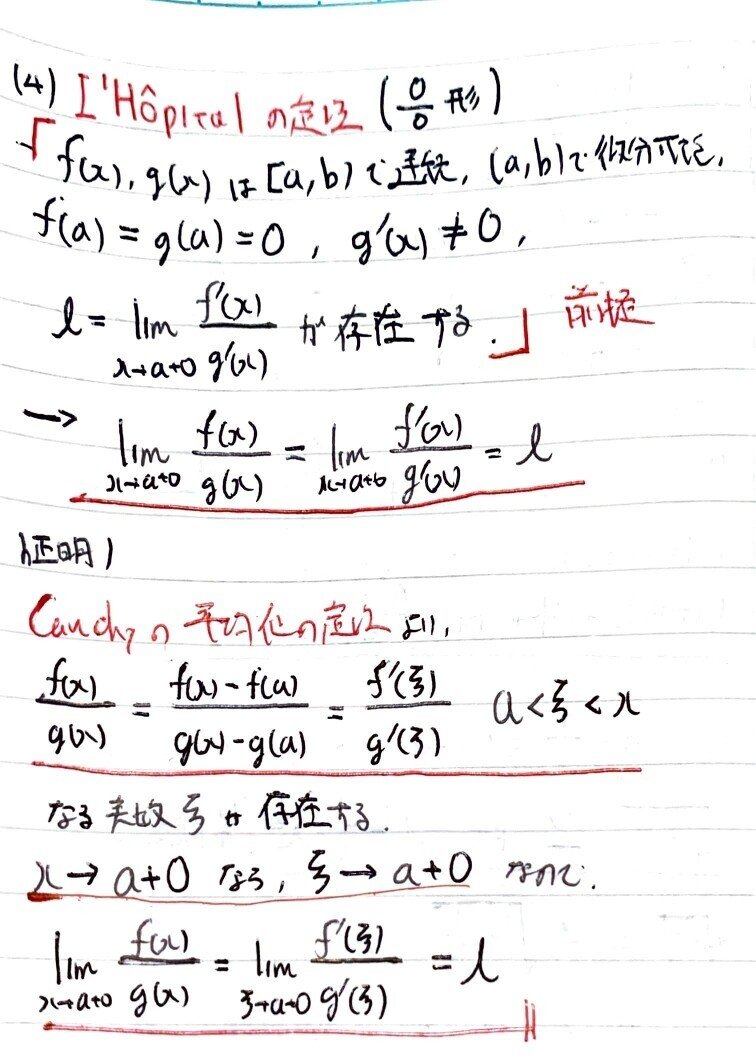 (4) l'Hôpital の定理 (0/0 形)
「f(x), g(x) は [a, b) で連続, (a, b) で微分可能,
f(a) = g(a) = 0 , g'(x) ≠ 0 ,
l = lim_{x→a+0} f'(x)/g'(x) が存在する.」 前提
→ lim_{x→a+0} f(x)/g(x) = lim_{x→a+0} f'(x)/g'(x) = l
証明)
Cauchy の平均値の定理より,
f(x)/g(x) = (f(x) - f(a))/(g(x) - g(a)) = f'(ξ)/g'(ξ) a < ξ < x
なる実数 ξ が存在する.
x → a+0 なら, ξ → a+0 なので.
lim_{x→a+0} f(x)/g(x) = lim_{ξ→a+0} f'(ξ)/g'(ξ) = l